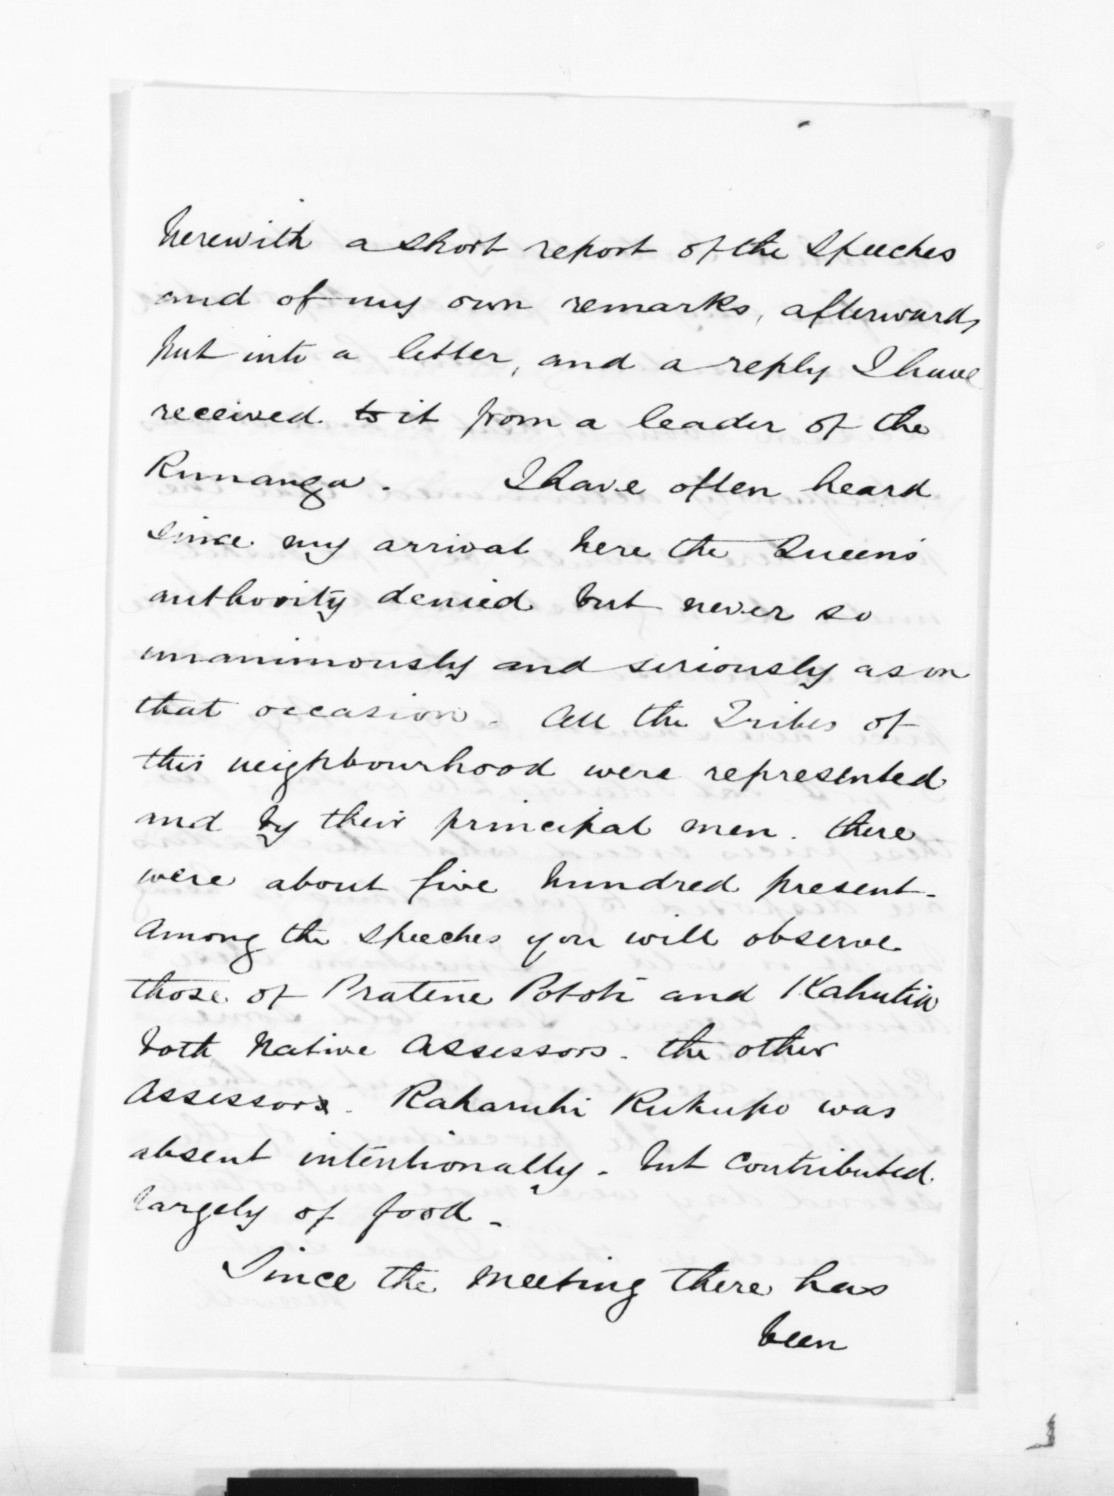 herewith a short report of the Speeches
and of my own remarks, afterwards
put into a letter, and a reply I have
received to it from a leader of the
Runanga. I have often heard
since my arrival here the Queen's
authority denied but never so
unanimously and seriously as on
that occasion. All the Tribes of
this neighbourhood were represented
and by their principal men. there
were about five hundred present.
Among the speeches you will observe
those of Pratene Pototi and Kahutia
both Native Assessors. the other
Assessor. Raharuhi Rukupo was
absent intentionally. but contributed
largely of food.
Since the meeting there has
been